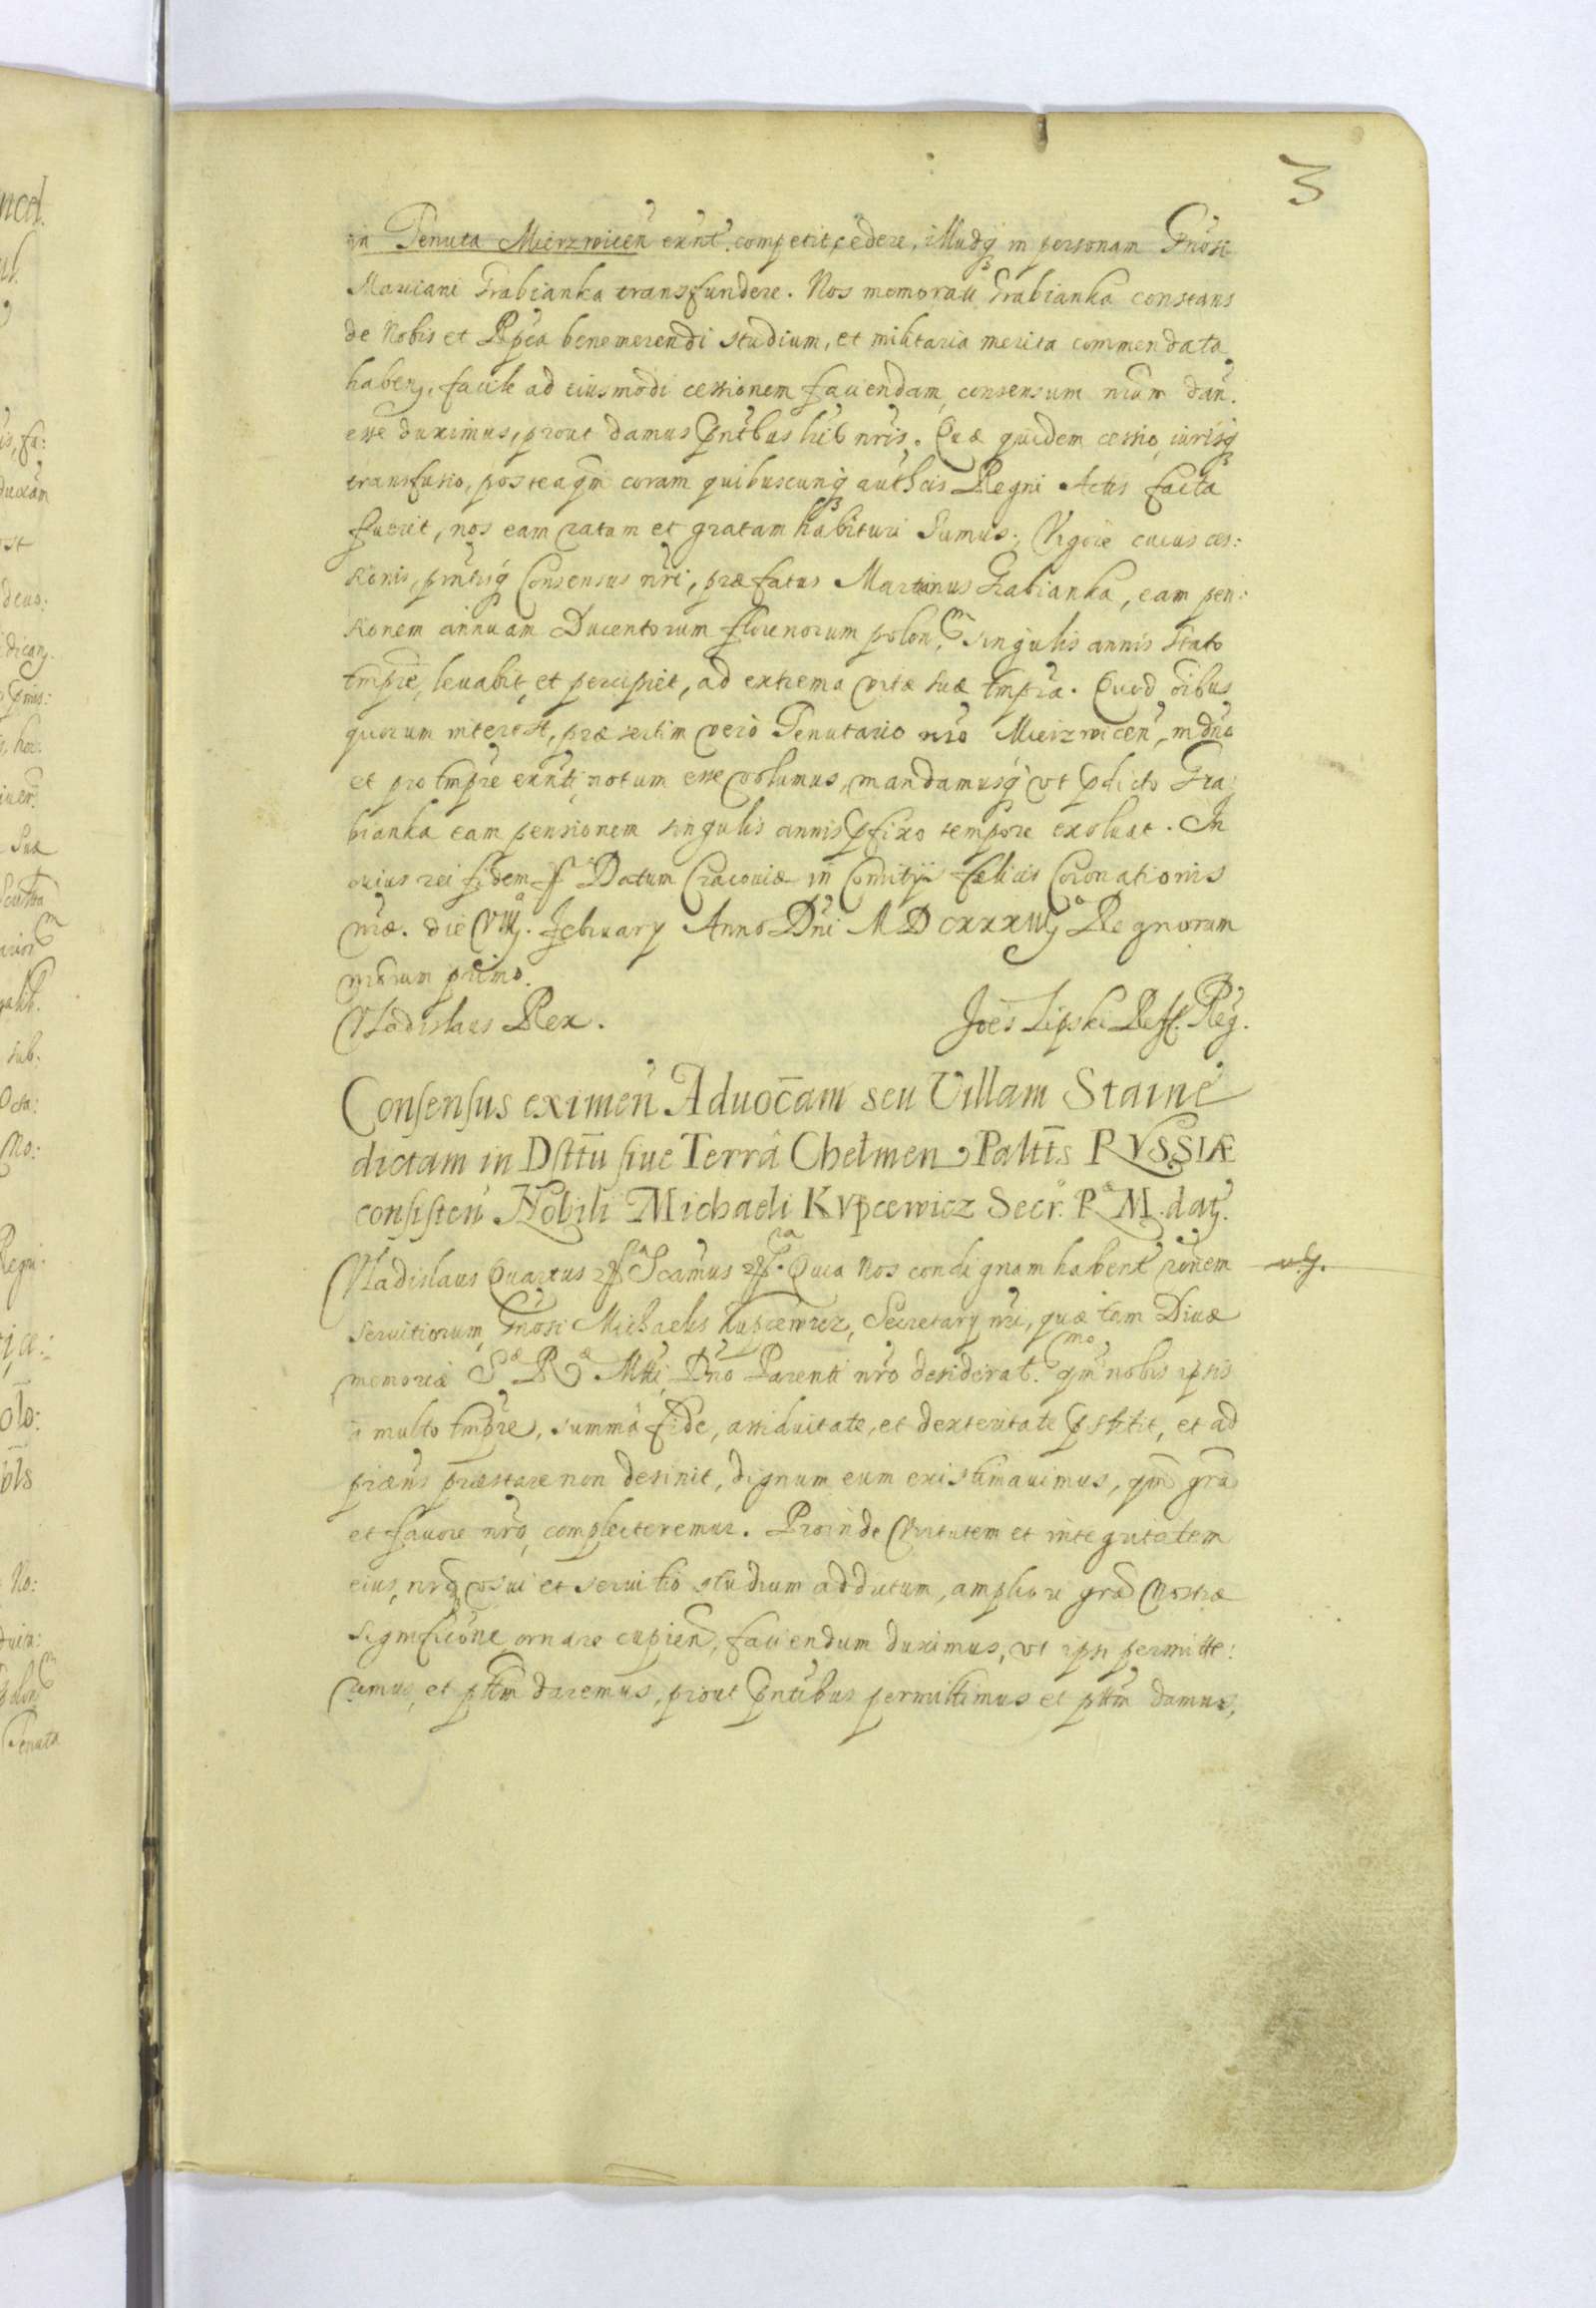 3
in Tenuta Mierzwicen̄ exn̄t. competit, cedere, illudq3 in personam Gn̄osi
Marciani Grabianka transfundere. Nos memorati Grabianka constans
de Nobis et Rp̄ca benemerendi studium, et militaria merita commendata
haben̄, facile ad eiusmodi cessionem faciendam, consensum n̄rum dan̄.
esse duximus, prout damus p̄ntibus lrīs n̄ris. Quæ quidem cessio, iurisq3
transfusio, posteaqm̄ coram quibuscunq3 autħcis Regni Actis facta
fuerit, nos eam ratam et gratam habituri sumus; Vigore cuius ces:
sionis, pn̄tisq3 Consensus nr̄i, præfatus Martinus Grabianka, eam pen:
sionem annuam Ducentorum florenorum polon. singulis annis stato
tmp̄re, levabit, et percipiet, ad extrema vitæ suæ tmp̄ra. Quod oībus
quorum interest, præsertim vero Tenutario nr̄o Mierzwicen̄, modn̄o
et pro tmp̄re exn̄ti, notum esse volumus, mandamusq3 vt pdicto Gra:
bianka eam pensionem singulis annis pfixo tempore exoluat. In
cuius rei fidem etc. Datum Cracouiæ in Comitijs fælicis Coronationis
n̄ræ. die VIIIa. February Anno Dn̄i MDCXXXIIIo Regnorum
nr̄orum primo.
Vladislaus Rex. Joēs Lipski Reff. Reg.
Consensus eximen̄ Aduocām seu Villam Staine
dictam in Dsttū siue Terrâ Chelmen. Palttīs RVSSIÆ
consisten̄ Nobili Michaeli Kvpcewicz Secr. R M. dat9.
Vladislaus Quartus etc. Sca͠mus etc. Quia Nos condignam habent̄ rōnem
seruitiorum, Gn̄osi Michaelis Kupcewicz, Secretary nr̄i, quæ tam Diuæ
memoriæ Sæ Ræ Mtti, Dn̄o Parenti nr̄o desiderat.mo qm̄ nobis ipsis
à multo tmp̄re, summâ fide, assiduitate, et dexteritate pstitit, et ad
præns præstare non desinit, dignum eum existimauimus, qm̄ grā
et fauore nr̄o, complecteremur. Proinde Virtutem et integritatem
eius, nr̄oq3 vsui et seruitio studium addictum, ampliori grāe Nostræ
significōne ornare cupien̄, faciendum duximus, vt ipsi permitte:
remus, et pttm̄ daremus, prout pn̄tibus permittimus et pttm̄ damus,